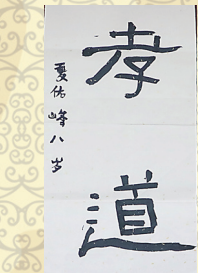 孝道
夏佑峰八岁